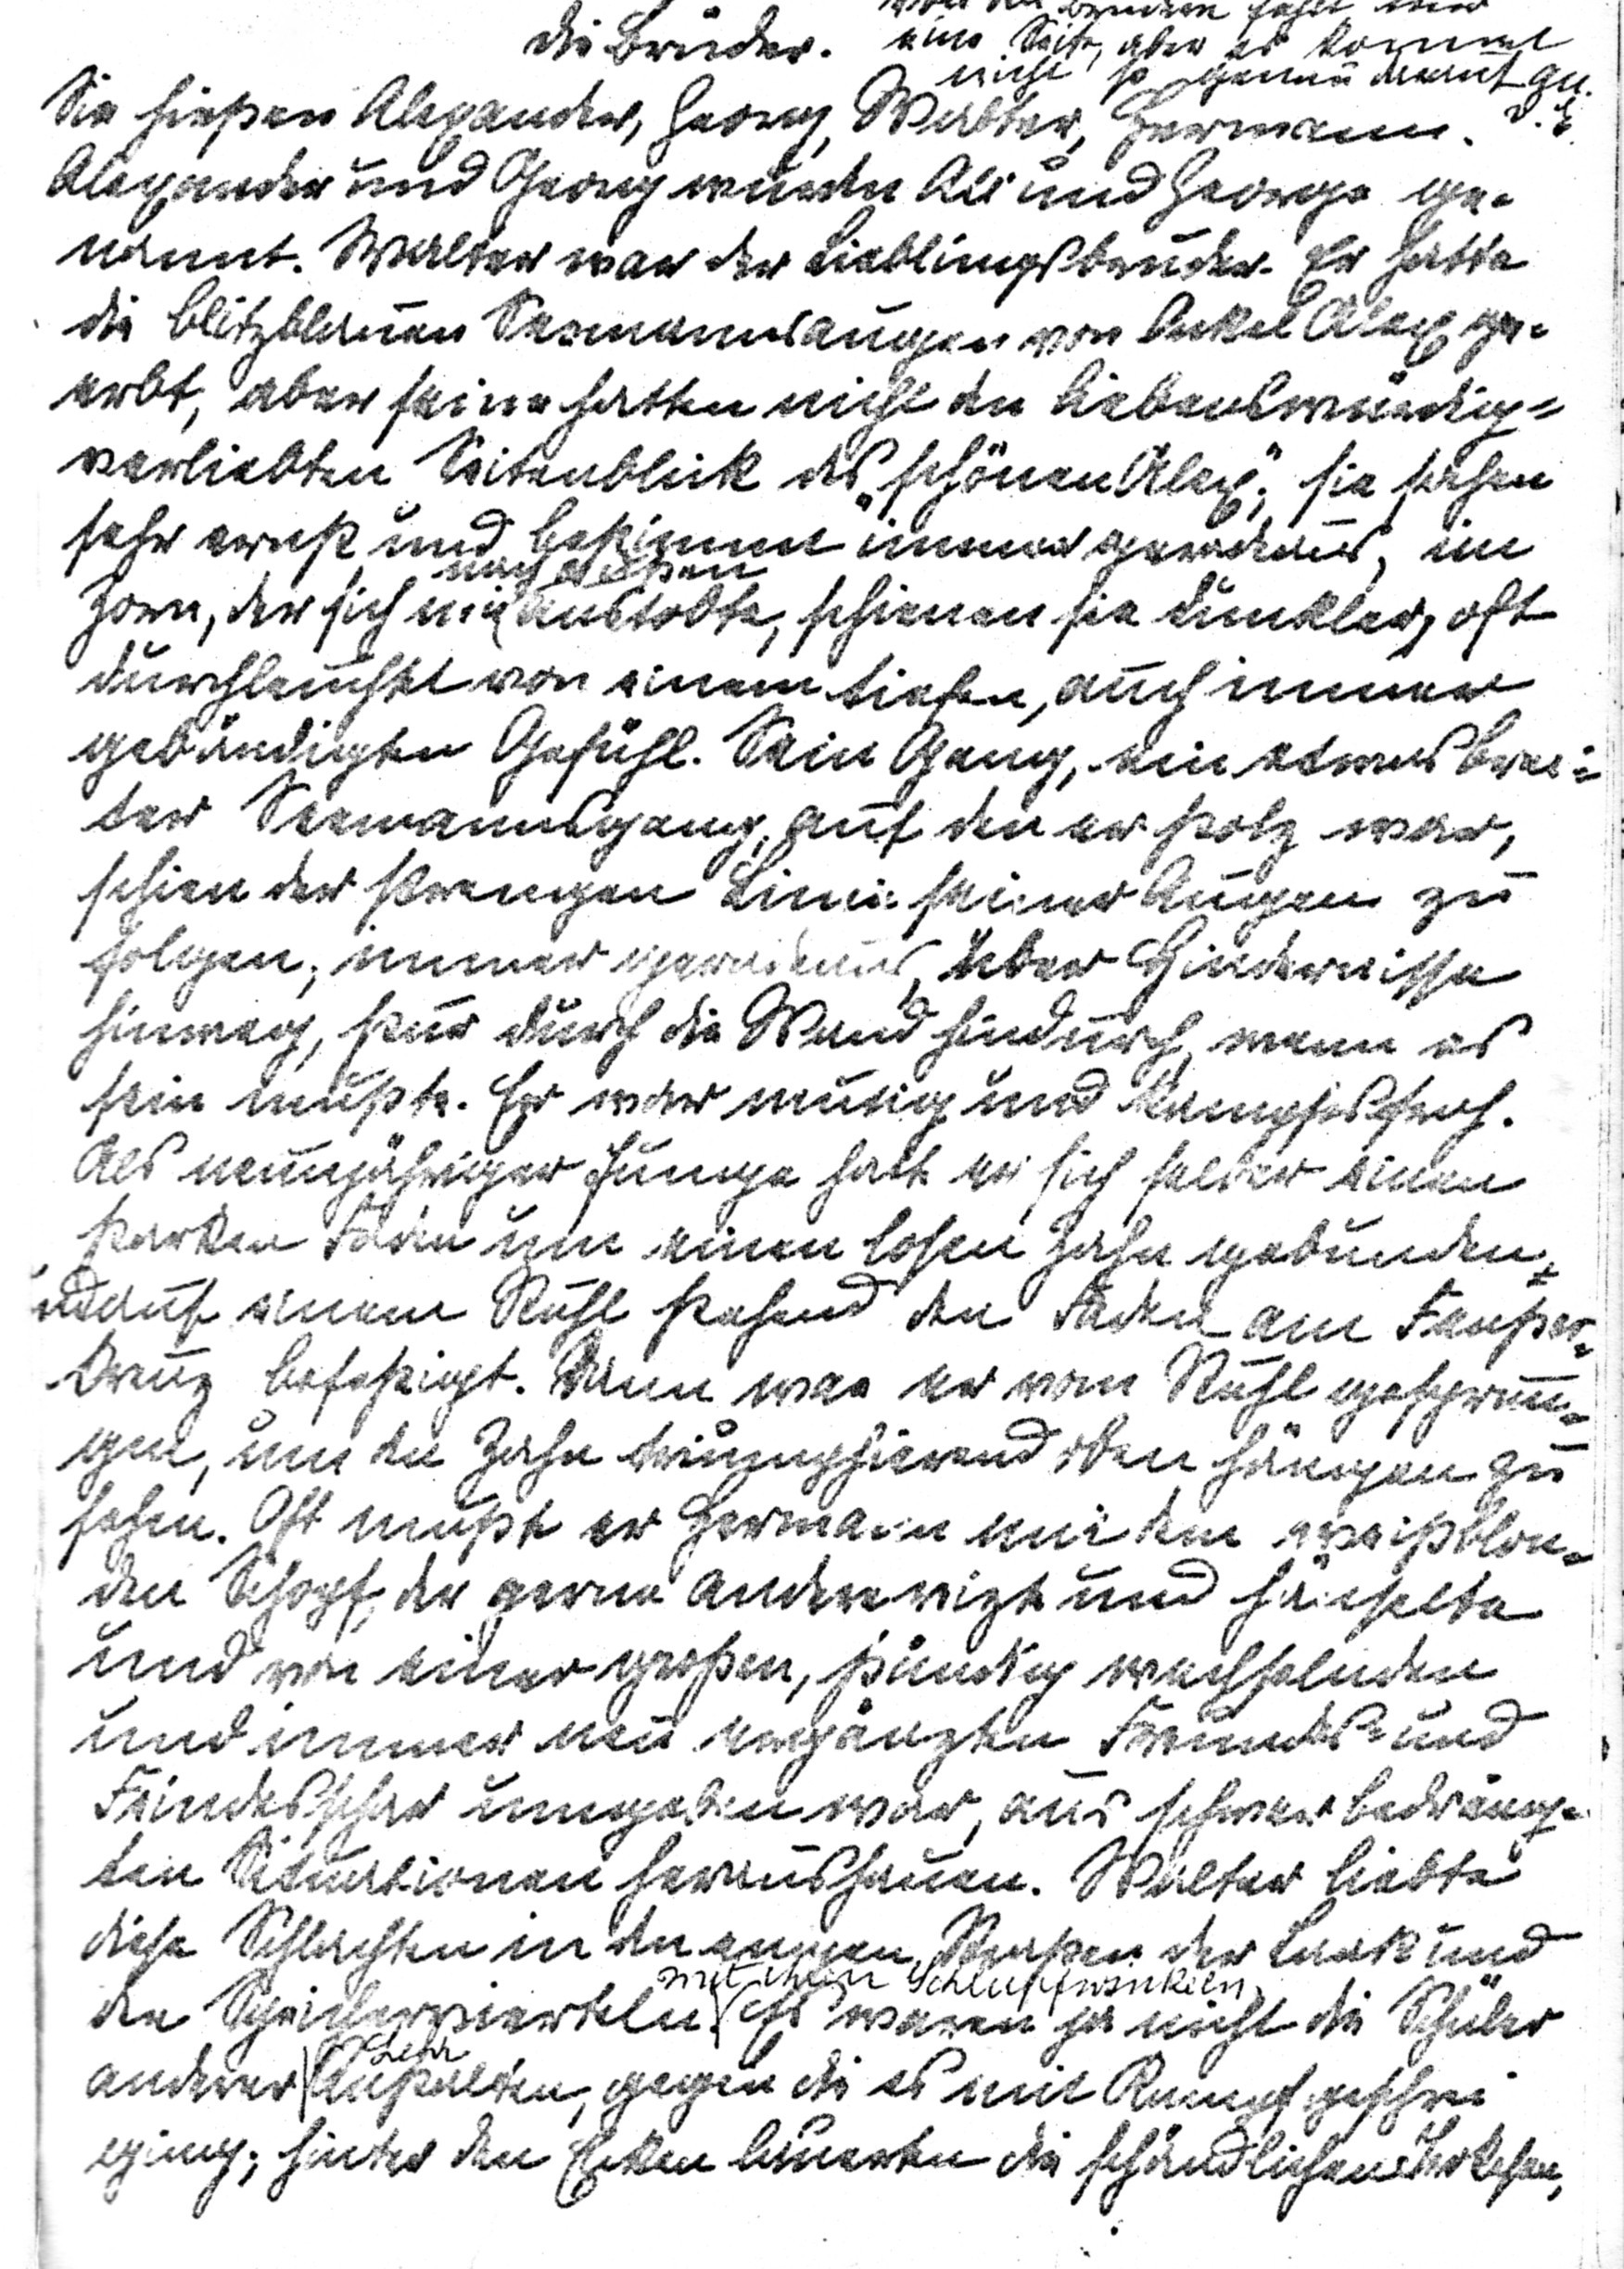 Von den Brüdern fehlt eine
Die Brüder. eine Seite, aber es kommt
nicht so genau darauf an.
Sie hießen Alexander, Georg, Walter, Hermann. D. E.
Alexander und Georg wurden Ali und George ge-
nannt. Walter war der Lieblingsbruder. Er hatte
die blitzblauen Seemannsaugen von Onkel Alex ge-
erbt, aber seine hatten nicht den liebenswürdig-
verliebten Seitenblick des "schönen Alex", sie sahen
sehr ernst und bestimmt immer geradeaus, im
nach außen
Zorn, der sich nie austobte, schienen sie dunkler, oft
durchleuchtet von einem tiefen, auch immer
gebändigten Gefühl. Sein Gang, ein etwas brei-
ter Seemannsgang, auf den er stolz war,
schien der strengen Linie seiner Augen zu
folgen, immer geradeaus, über Hindernisse
hinweg, stur durch die Wand hindurch, wenn es
sein mußte. Er war mutig und kampfesfroh.
Als neunjähriger Junge hat er sich selber einen
starken Faden um einen losen Zahn gebunden,
und auf einem Stuhl stehend den Faden am Fenster-
kreuz befestigt. Dann war er vom Stuhl gesprun-
gen, um den Zahn triumphierend oben hängen zu
sehen. Oft mußte er Hermann mit dem weißblon-
den Schopf, der gerne andere reizte und hänselte
und von einer großen, ständig wechselnden
und immer neu ergänzten Freundes- und
Feindesschar umgeben war, aus schwer bedräng-
ten Situationen heraushauen. Walter liebte
diese Schlachten in den engen Straßen der Lastadie und
mit ihren Schlupfwinkeln
den Speichervierteln. Es waren ja nicht die Schüler
Lehr
anderer Anstalten, gegen die es mit Kampfgeschrei
ging, hinter den Ecken lauerten die schändlichen